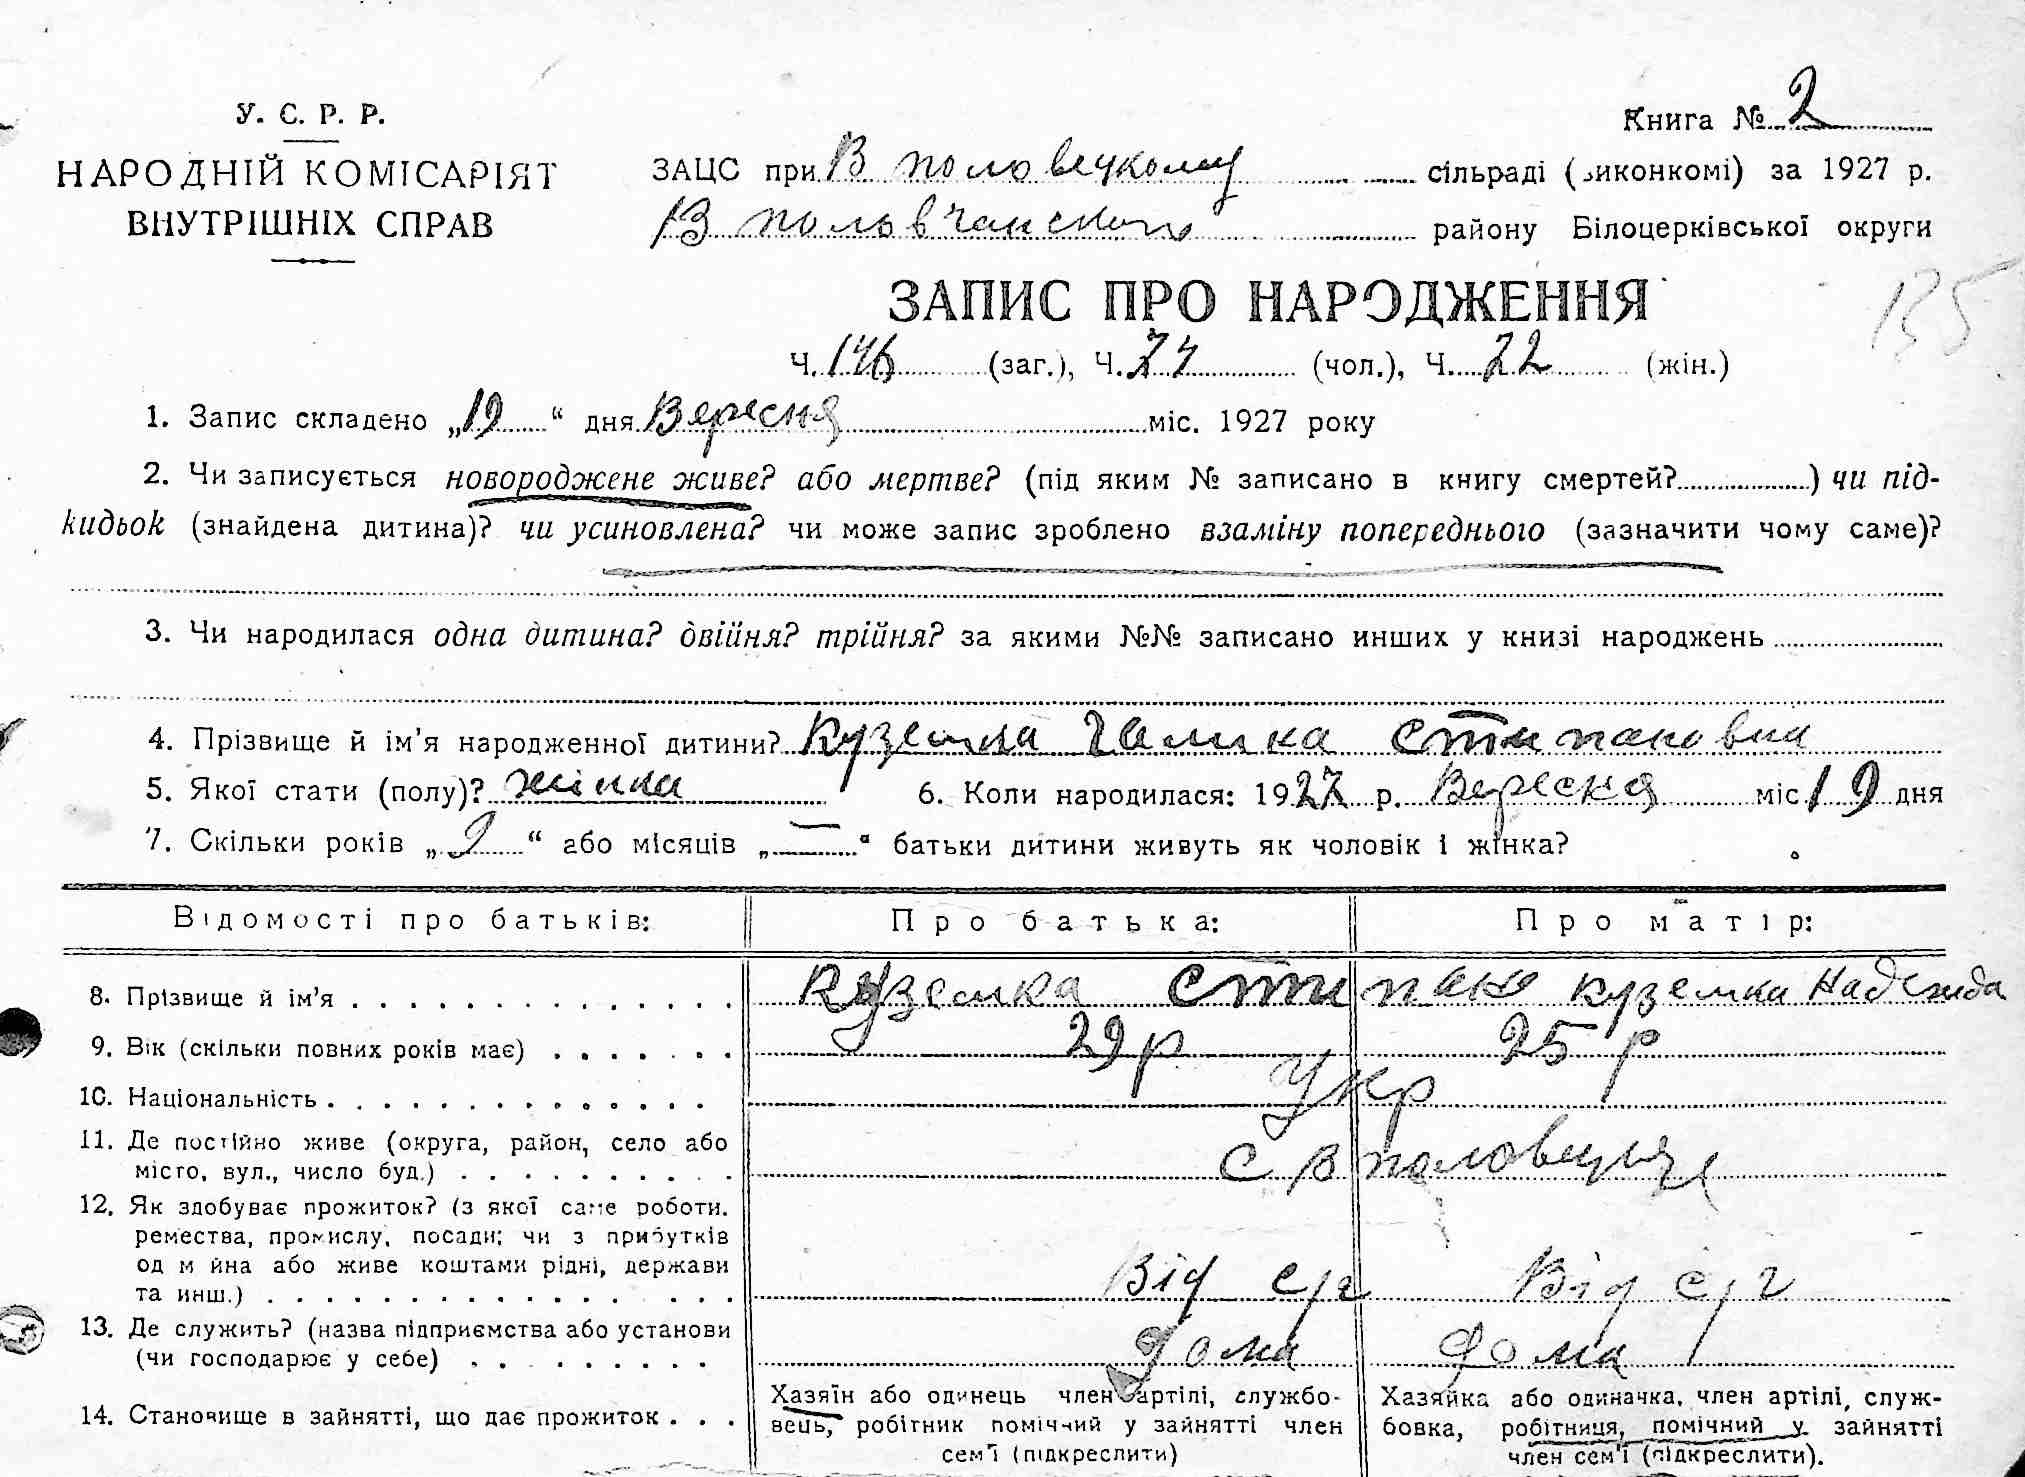 У. С. Р. Р.
НАРОДНІЙ КОМІСАРІЯТ
ВНУТРІШНІХ СПРАВ
Книга № 2
ЗАЦС при В половецкому сільраді (виконкомі) за 1927 р.
В половчанского району Білоцерківської округи
135
ЗАПИС ПРО НАРОДЖЕННЯ
Ч. 146 (заг.), Ч. 74 (чол.), Ч. 72 (жін.)
1. Запис складено „19“ дня Вересня міс. 1927 року
2. Чи записується новороджене живе? або мертве? (під яким № записано в книгу смертей?) чи під-
кидьок (знайдена дитина)? чи усиновлена? чи може запис зроблено взаміну попереднього (зазначити чому саме)?
3. Чи народилася одна дитина? двійня? трійня? за якими №№ записано инших у книзі народжень
4. Прізвище й ім’я народженної дитини? Куземка Галика Стипановна
5. Якої стати (полу)? жінка 6. Коли народилася: 1927 р. Вересня міс 19 дня
7. Скільки років „9“ або місяців „—“ батьки дитини живуть як чоловік і жінка?
Відомості про батьків: Про батька: Про матір:
8. Прізвище й ім’я Куземка Стипано Куземка Надежда
9. Вік (скільки повних років має) 29 р 25 р
10. Національність Укр
11. Де постійно живе (округа, район, село або
місто, вул., число буд.) С В половецьке
12. Як здобуває прожиток? (з якої саме роботи,
ремества, промислу, посади; чи з прибутків
од м йна або живе коштами рідні, держави
та инш.) Від с/г Від с/г
13. Де служить? (назва підприємства або установи
(чи господарює у себе) дома дома
14. Становище в зайнятті, що дає прожиток
Хазяїн або одинець член артілі, службо-
вець, робітник помічний у зайнятті член
сем’ї (підкреслити)
Хазяйка або одиначка, член артілі, служ-
бовка, робітниця, помічний у зайнятті
член сем’ї (підкреслити).